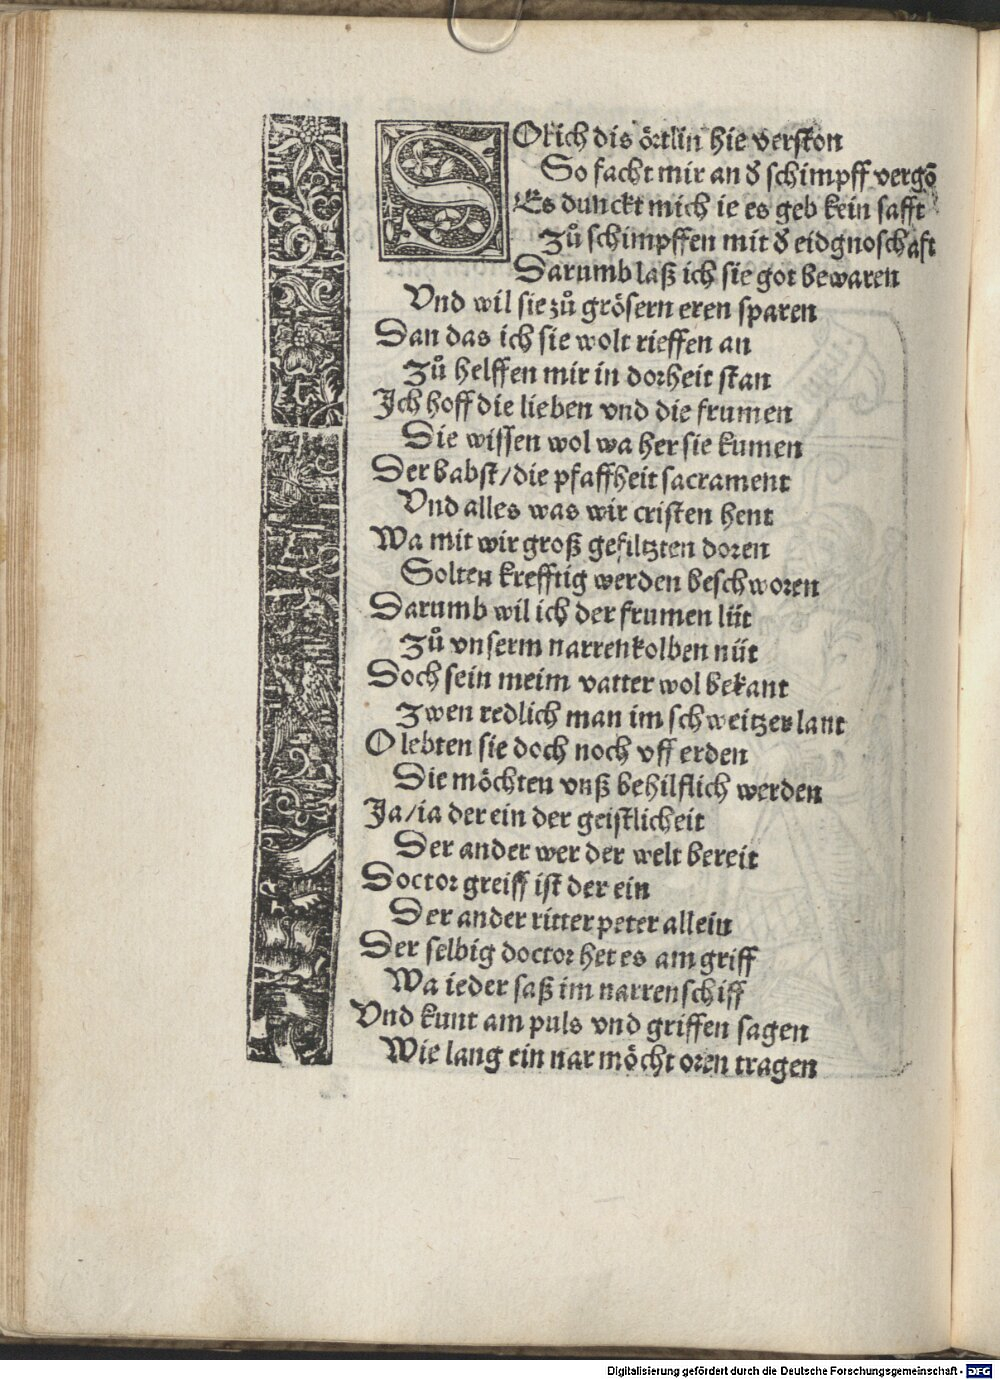 SOlich dis örtlin hie verston
So facht mir an d̕ schimpff vergō
Es dunckt mich ie es geb kein safft
Zů schimpffen mit d̕ eidgnoschaft
Darumb laß ich sie got bewaren
Vnd wil sie zů grösern eren sparen
Dan das ich sie wolt rieffen an
Zů helffen mir in dorheit stan
Ich hoff die lieben vnd die frumen
Die wissen wol wa her sie kumen
Der babst/die pfaffheit sacrament
Vnd alles was wir cristen hent
Wa mit wir groß gefiltzten doren
Solten krefftig werden beschworen
Darumb wil ich der frumen lüt
Zů vnserm narrenkolben nüt
Doch sein meim vatter wol bekant
Zwen redlich man im schweitzer lant
O lebten sie doch noch vff erden
Die möchten vnß behilflich werden
Ja/ia der ein der geistlicheit
Der ander wer der welt bereit
Doctor greiff ist der ein
Der ander ritter peter allein
Der selbig doctor het es am griff
Wa ieder saß im narrenschiff
Vnd kunt am puls vnd griffen sagen
Wie lang ein nar möcht oren tragen
Digitalisierung gefördert durch die Deutsche Forschungsgemeinschaft - DFG